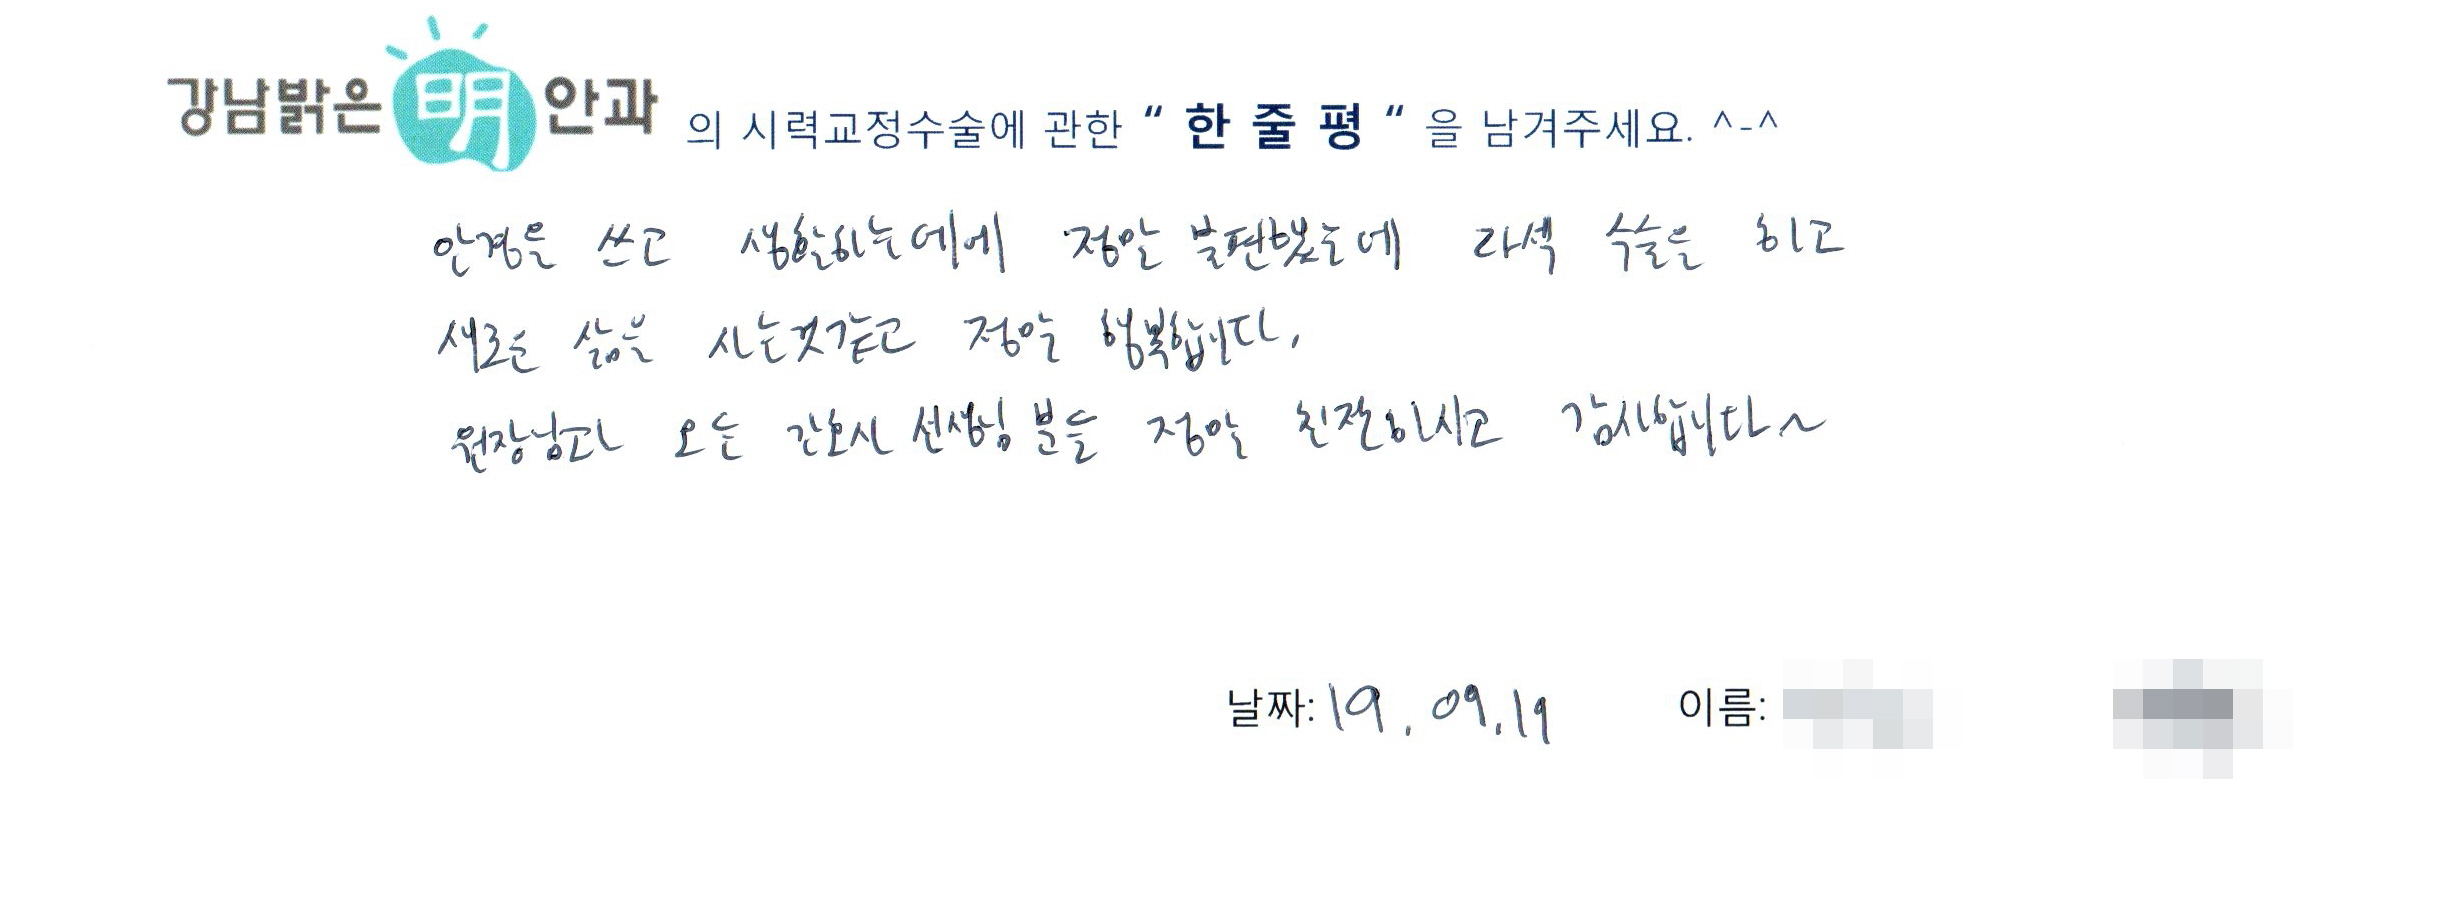 강남밝은明안과 의 시력교정수술에 관한 “ 한 줄 평 “ 을 남겨주세요. ^-^
안경을 쓰고 생활하는데에 정말 불편했는데 라섹 수술을 하고
새로운 삶을 사는것같고 정말 행복합니다.
원장님과 모든 간호사 선생님 분들 정말 친절하시고 감사합니다~
날짜: 19. 09. 19 이름: